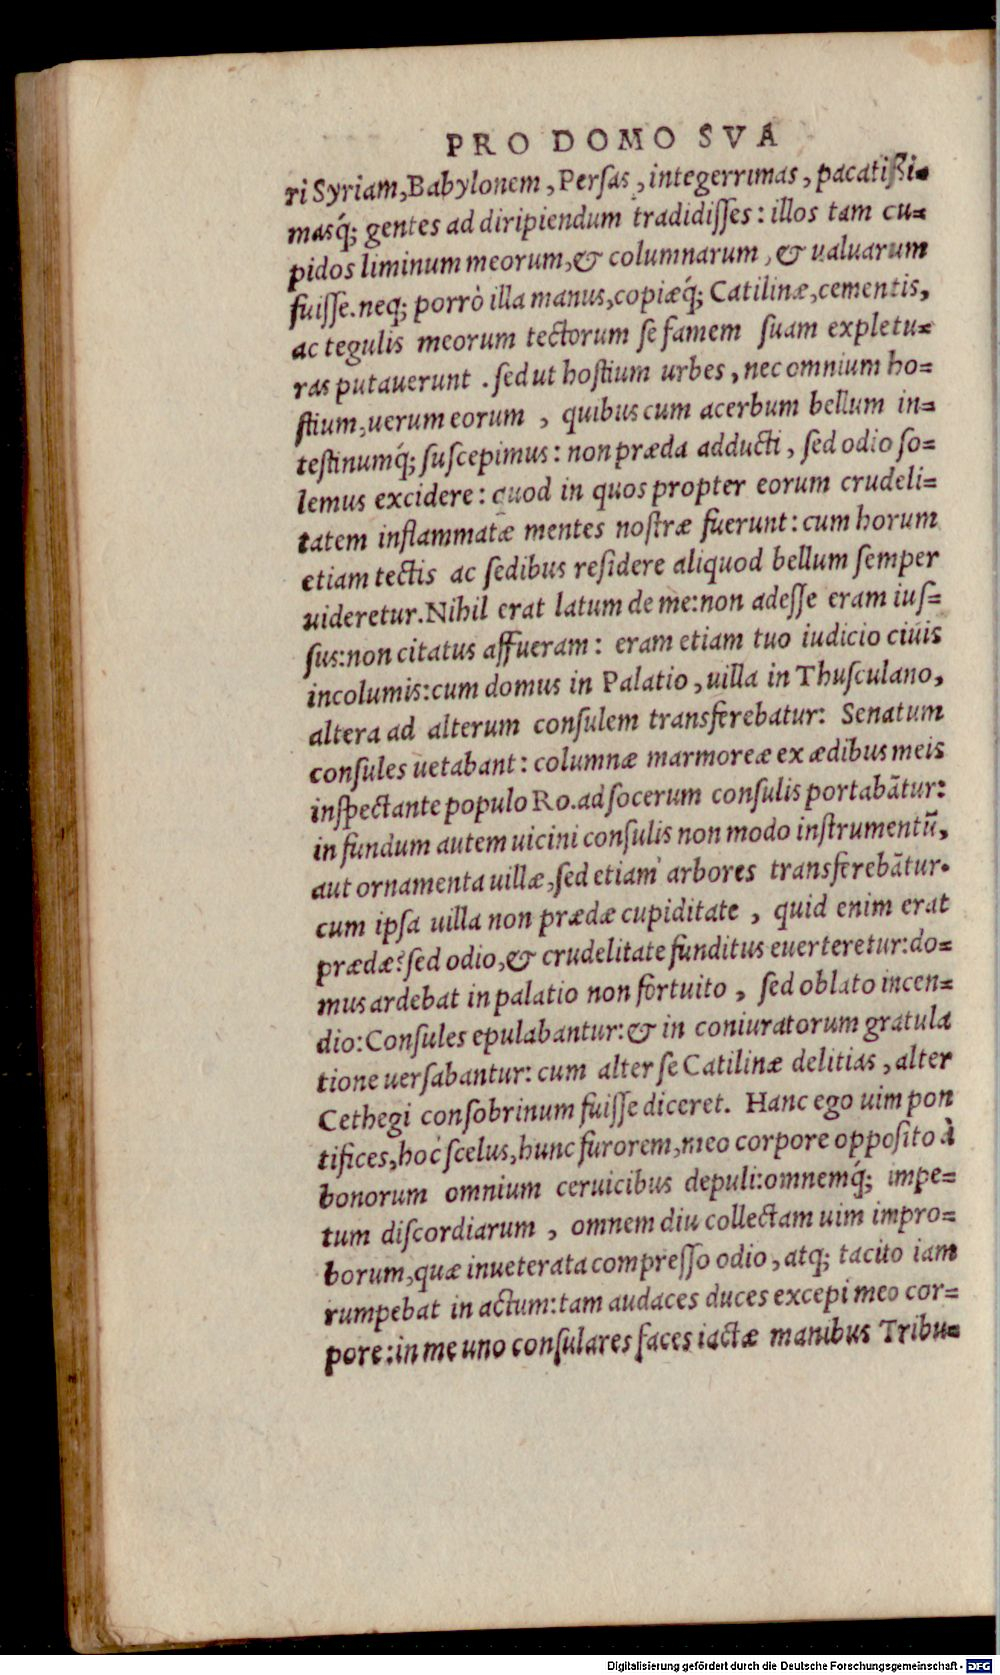 PRO DOMO SVA
ri Syriam, Babylonem, Persas, integerrimas, pacatißi-
masq́; gentes ad diripiendum tradidisses: illos tam cu=
pidos liminum meorum, & columnarum, & ualuarum
fuisse. neq; porrò illa manus, copiæq́; Catilinæ, cementis,
ac tegulis meorum tectorum se famem suam expletu=
ras putauerunt. sed ut hostium urbes, nec omnium ho=
stium, uerum eorum, quibus cum acerbum bellum in=
testinumq́; suscepimus: non præda adducti, sed odio so=
lemus excidere: quod in quos propter eorum crudeli=
tatem inflammatæ mentes nostræ fuerunt: cum horum
etiam tectis ac sedibus residere aliquod bellum semper
uideretur. Nihil erat latum de me: non adesse eram ius=
sus: non citatus affueram: eram etiam tuo iudicio ciuis
incolumis: cum domus in Palatio, uilla in Thusculano,
altera ad alterum consulem transferebatur: Senatum
consules uetabant: columnæ marmoreæ ex ædibus meis
inspectante populo Ro. ad socerum consulis portabãtur:
in fundum autem uicini consulis non modo instrumentũ,
aut ornamenta uillæ, sed etiam arbores transferebãtur.
cum ipsa uilla non prædæ cupiditate, quid enim erat
prædæ? sed odio, & crudelitate funditus euerteretur: do=
mus ardebat in palatio non fortuito, sed oblato incen=
dio: Consules epulabantur: & in coniuratorum gratula
tione uersabantur: cum alter se Catilinæ delitias, alter
Cethegi consobrinum fuisse diceret. Hanc ego uim pon
tifices, hoc scelus, hunc furorem, meo corpore opposito à
bonorum omnium ceruicibus depuli: omnemq́; impe=
tum discordiarum, omnem diu collectam uim impro=
borum, quæ inueterata compresso odio, atq; tacito iam
rumpebat in actum: tam audaces duces excepi meo cor=
pore: in me uno consulares faces iactæ manibus Tribu=
Digitalisierung gefördert durch die Deutsche Forschungsgemeinschaft - DFG